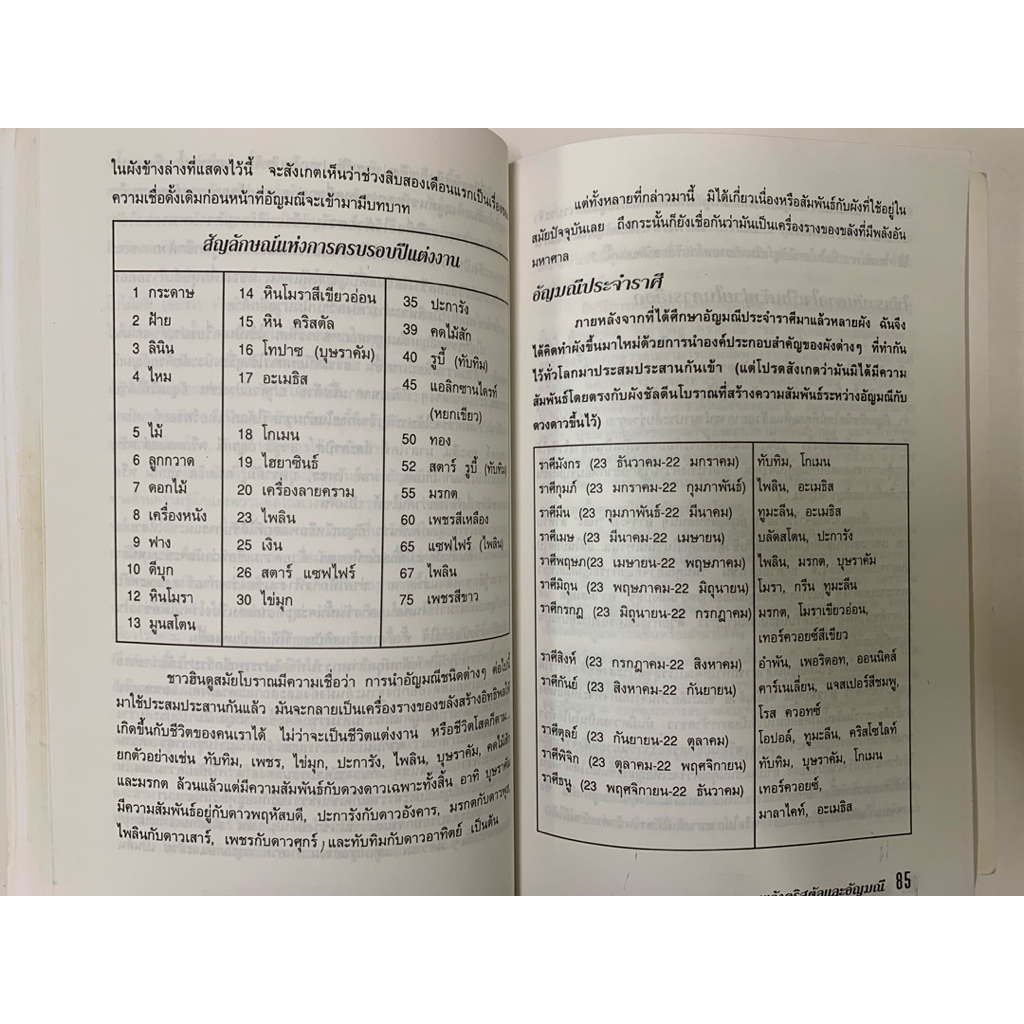 ในผังข้างล่างที่แสดงไว้นี้ จะสังเกตเห็นว่าช่วงสิบสองเดือนแรกเป็นเรื่อง
ความเชื่อดั้งเดิมก่อนหน้าที่อัญมณีจะเข้ามามีบทบาท
สัญลักษณ์แห่งการครบรอบปีแต่งงาน
1 กระดาษ
2 ฝ้าย
3 ลินิน
4 ไหม
5 ไม้
6 ลูกกวาด
7 ดอกไม้
8 เครื่องหนัง
9 ฟาง
10 ดีบุก
12 หินโมรา
13 มูนสโตน
14 หินโมราสีเขียวอ่อน
15 หิน คริสตัล
16 โทปาซ (บุษราคัม)
17 อะเมธิส
18 โกเมน
19 ไฮยาซินธ์
20 เครื่องลายคราม
23 ไพลิน
25 เงิน
26 สตาร์ แซฟไฟร์
30 ไข่มุก
35 ปะการัง
39 คดไม้สัก
40 รูบี้ (ทับทิม)
45 แอลิกซานไดรท์
(หยกเขียว)
50 ทอง
52 สตาร์ รูบี้ (ทับทิม)
55 มรกต
60 เพชรสีเหลือง
65 แซฟไฟร์ (ไพลิน)
67 ไพลิน
75 เพชรสีขาว
ชาวฮินดูสมัยโบราณมีความเชื่อว่า การนำอัญมณีชนิดต่างๆ ต่อไปนี้
มาใช้ประสมประสานกันแล้ว มันจะกลายเป็นเครื่องรางของขลังสร้างอิทธิพลให้
เกิดขึ้นกับชีวิตของคนเราได้ ไม่ว่าจะเป็นชีวิตแต่งงาน หรือชีวิตโสดก็ตาม...
ยกตัวอย่างเช่น ทับทิม, เพชร, ไข่มุก, ปะการัง, ไพลิน, บุษราคัม, คดไม้สัก
และมรกต ล้วนแล้วแต่มีความสัมพันธ์กับดวงดาวเฉพาะทั้งสิ้น อาทิ บุษราคัม
มีความสัมพันธ์อยู่กับดาวพฤหัสบดี, ปะการังกับดาวอังคาร, มรกตกับดาวพุธ,
ไพลินกับดาวเสาร์, เพชรกับดาวศุกร์, และทับทิมกับดาวอาทิตย์ เป็นต้น
แต่ทั้งหลายที่กล่าวมานี้ มิได้เกี่ยวเนื่องหรือสัมพันธ์กับผังที่ใช้อยู่ใน
สมัยปัจจุบันเลย ถึงกระนั้นก็ยังเชื่อกันว่ามันเป็นเครื่องรางของขลังที่มีพลังอัน
มหาศาล
อัญมณีประจำราศี
ภายหลังจากที่ได้ศึกษาอัญมณีประจำราศีมาแล้วหลายผัง ฉันจึง
ได้คิดทำผังขึ้นมาใหม่ด้วยการนำองค์ประกอบสำคัญของผังต่างๆ ที่ทำกัน
ไว้ทั่วโลกมาประสมประสานกันเข้า (แต่โปรดสังเกตว่ามันมิได้มีความ
สัมพันธ์โดยตรงกับผังชัลดีนโบราณที่สร้างความสัมพันธ์ระหว่างอัญมณีกับ
ดวงดาวขึ้นไว้)
ราศีมังกร (23 ธันวาคม-22 มกราคม) ทับทิม, โกเมน
ราศีกุมภ์ (23 มกราคม-22 กุมภาพันธ์) ไพลิน, อะเมธิส
ราศีมีน (23 กุมภาพันธ์-22 มีนาคม) ทูมะลีน, อะเมธิส
ราศีเมษ (23 มีนาคม-22 เมษายน) บลัดสโตน, ปะการัง
ราศีพฤษภ(23 เมษายน-22 พฤษภาคม) ไพลิน, มรกต, บุษราคัม
ราศีมิถุน (23 พฤษภาคม-22 มิถุนายน) โมรา, กรีน ทูมะลีน
ราศีกรกฎ (23 มิถุนายน-22 กรกฎาคม) มรกต, โมราเขียวอ่อน,
เทอร์ควอยซ์สีเขียว
ราศีสิงห์ (23 กรกฎาคม-22 สิงหาคม) อำพัน, เพอริดอท, ออนนิคส์
ราศีกันย์ (23 สิงหาคม-22 กันยายน) คาร์เนเลี่ยน, แจสเปอร์สีชมพู,
โรส ควอทซ์
ราศีตุลย์ (23 กันยายน-22 ตุลาคม) โอปอล์, ทูมะลีน, คริสโซไลท์
ราศีพิจิก (23 ตุลาคม-22 พฤศจิกายน) ทับทิม, บุษราคัม, โกเมน
ราศีธนู (23 พฤศจิกายน-22 ธันวาคม) เทอร์ควอยซ์,
มาลาไคท์, อะเมธิส
คริสตัลและอัญมณี 85